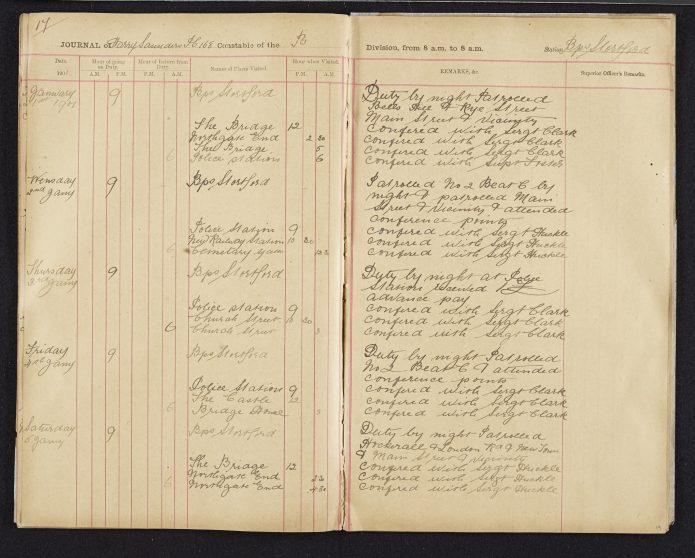 17
JOURNAL of Harry Saunders PC 168 Constable of the B
Division, from 8 a.m. to 8 a.m. Station, Bps Stortford
Date. Hour of going on Duty. Hour of Return from Duty. Names of Places Visited. Hour when Visited.
190 A.M. P.M. P.M. A.M. P.M. A.M.
REMARKS, &c. Superior Officer's Remarks.
January 9 Bps Stortford
1st 1901
The Bridge 12
Northgate End 2 30
The Bridge 5
Police Station 6
Duty by night Patrolled
Bells Hill & Rye Street
Main Street & Vicinity
Confered with Sergt Clark
Confered with Sergt Clark
Confered with Sergt Clark
Confered with Supt Foster
Wensday 9 Bps Stortford
2nd Jany
Police Station 9
New Railway Station 10 30
6 Cemetary Gate
Patrolled No 2 Beat C by
night & patrolled Main
Street & Vicinity & attended
Conference points
Confered with Sergt Huckle
Confered with Sergt Huckle
Confered with Sergt Huckle
Thursday 9 Bps Stortford
3rd Jany
Police Station 9
Church Street 10 30
6 Church Street 3
Duty by night at Police
Station received
advance pay
Confered with Sergt Clark
Confered with Sergt Clark
Confered with Sergt Clark
Friday 9 Bps Stortford
4th Jany
Police Station 9
The Castle 12
6 Bridge House 3
Duty by night Patrolled
No 2 Beat C & attended
Conference points
Confered with Sergt Clark
Confered with Sergt Clark
Confered with Sergt Clark
Saturday 9 Bps Stortford
5 Jany
The Bridge 12
Northgate End
6 Northgate End 4 30
Duty by night Patrolled
Hockerall & London Rd & New Town
& Main Street & Vicinity
Confered with Sergt Huckle
Confered with Sergt Huckle
Confered with Sergt Huckle